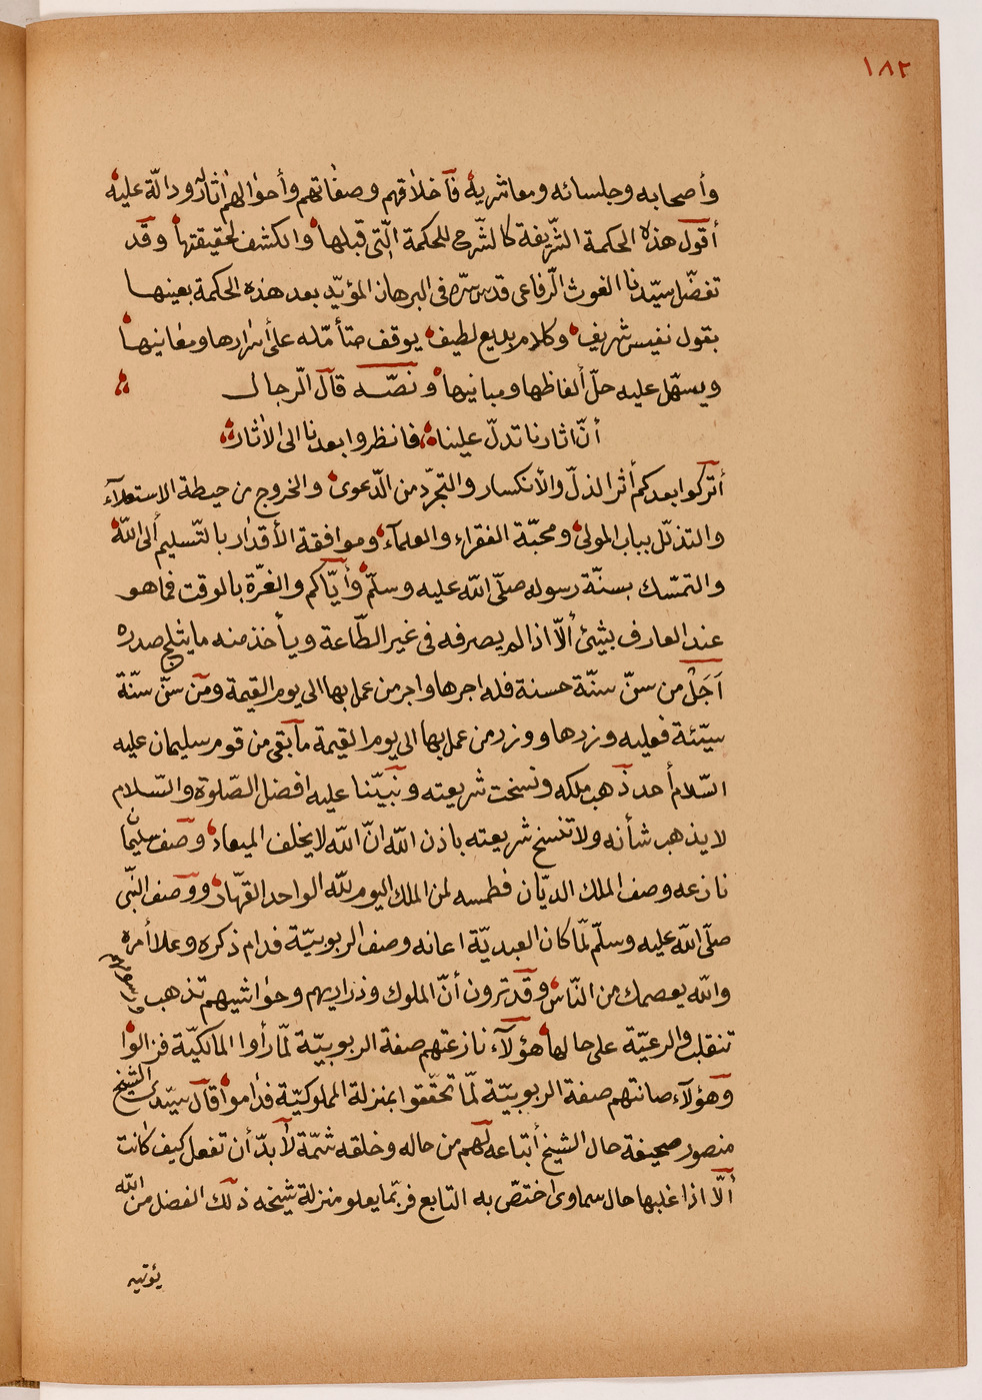 ١٨٢
وأصحابه وجلسائه ومعاشريه فأخلاقهم وصفاتهم وأحوالهم آثاره ودالّة عليه
أقول هذه الحكمة الشّريفة كالشّرح للحكمة الّتى قبلها والكشف لحقيقتها وقد
تفضّل سيّدنا الغوث الرّفاعى قدس سرّه فى البرهان المؤيّد بعد هذه الحكمة بعينها
بقول نفيس شريف وكلام بديع لطيف يوقف متأمّله على أسرارها ومعانيها
ويسهّل عليه حلّ ألفاظها ومبانيها ونصّه قال الرّجال
أنّ اثارنا تدلّ علينا فانظروا بعدنا الى الاثار
أتركوا بعدكم أثر الذلّ والأنكسار والتجرّد من الدّعوى والخروج من حيطة الاستعلآء
والتذلّل بباب المولى ومحبّة الفقراء والعلمآء وموافقة الأقدار بالتّسليم ألى اللّه
والتمسّك بسنّة رسوله صلّى اللّه عليه وسلّم وأيّاكم والغرّة بالوقت فما هو
عند العارف بشيئ ألّا اذا لم يصرفه فى غير الطّاعة ويأخذ منه ما يثلج صدره
اَجَلْ من سنّ سنّة حسنة فله اجرها واجر من عمل بها الى يوم القيمة ومن سنّ سنّة
سيّئة فعليه وزرها ووزر من عمل بها الى يوم القيمة ما بقى من قوم سليمان عليه
السّلام أحد ذهب ملكه ونسخت شريعته ونبيّنا عليه افضل الصّلوة والسّلام
لا يذهب شأنه ولا تنسخ شريعته باذن اللّه انّ اللّه لا يخلف الميعاد وصف سليمان
نازعه وصف الملك الديّان فطمسه لمن الملك اليوم للّه الواحد القهّار ووصف النّبى
صلّى اللّه عليه وسلّم لمّا كان العبديّة اعانه وصف الربوبيّة فدام ذكره وعلا أمره
واللّه يعصمك من النّاس وقد ترون أنّ الملوك وذراريهم وحواشيهم تذهب
تنقلب والرعيّة على حالها هؤلآء نازعتهم صفة الربوبيّة لمّا رأوا المالكيّة فزالوا
وهؤلآء صانتهم صفة الربوبيّة لمّا تحقّقوا بمنزلة المملوكيّة فداموا قال سيّدى الشيخ
منصور صحيفة حال الشيخ أتباعه لهم من حاله وخلقه شمّة لا بدّ أن تفعل كيف كانت
ألّا اذا غلبها حال سماوى اختصّ به التابع فربّما يعلو منزلة شيخه ذلك الفضل من اللّه
يؤتيه